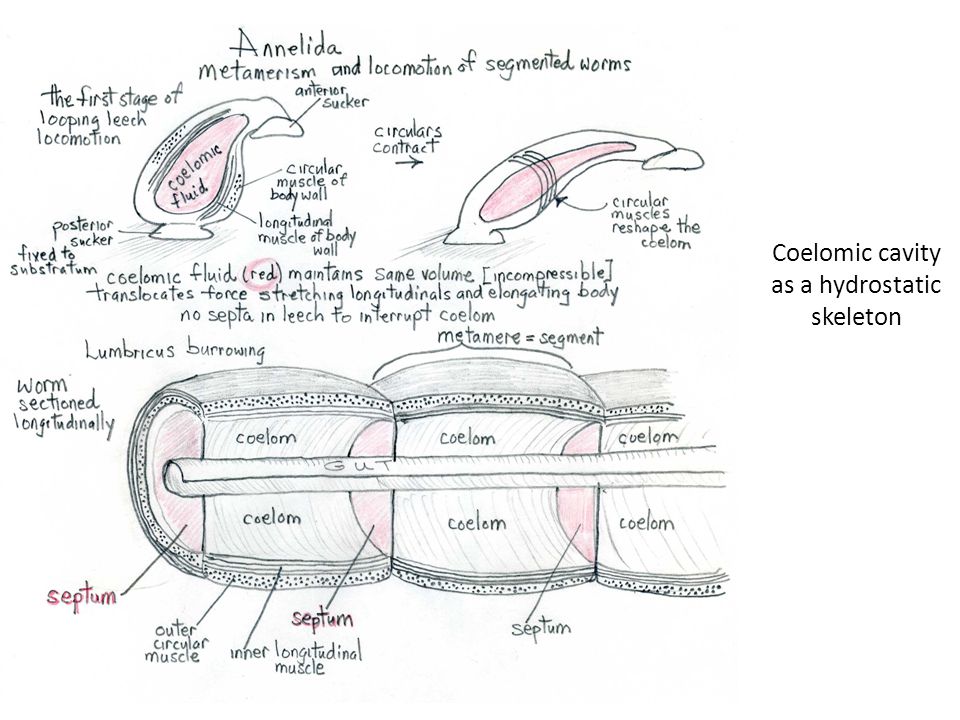 Annelida
metamerism and locomotion of segmented worms
the first stage of
looping leech
locomotion
anterior
sucker
coelomic
fluid
circular
muscle of
body wall
longitudinal
muscle of body
wall
posterior
sucker
fixed to
substratum
circulars
contract
circular
muscles
reshape the
coelom
coelomic fluid (red) maintains same volume [incompressible]
translocates force stretching longitudinals and elongating body
no septa in leech to interrupt coelom
Coelomic cavity
as a hydrostatic
skeleton
metamere = segment
Lumbricus burrowing
worm
sectioned
longitudinally
coelom
coelom
coelom
GUT
coelom
coelom
coelom
septum
septum
septum
outer
circular
muscle
inner longitudinal
muscle